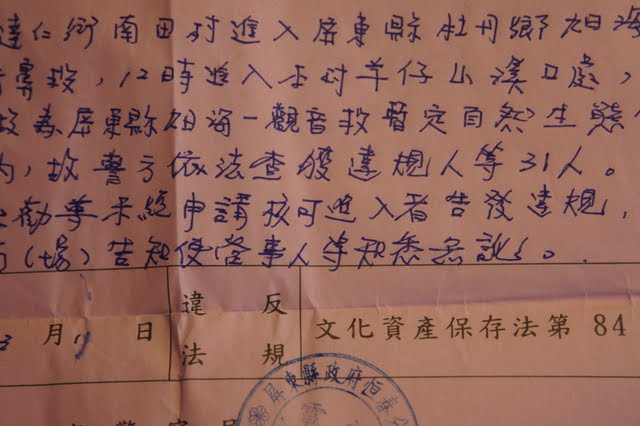 達仁鄉南田村進入屏東縣牡丹鄉旭海
12時進入本村羊仔山溪口處，
屏東縣旭海一觀音 暫定自然生態
內，故警方依法查獲違規人等31人。
勸導未經申請核可進入者告發違規，
(場)告知使當事人等知悉無訛。
月 日 違反法規 文化資產保存法第84
屏東縣政府恒春分